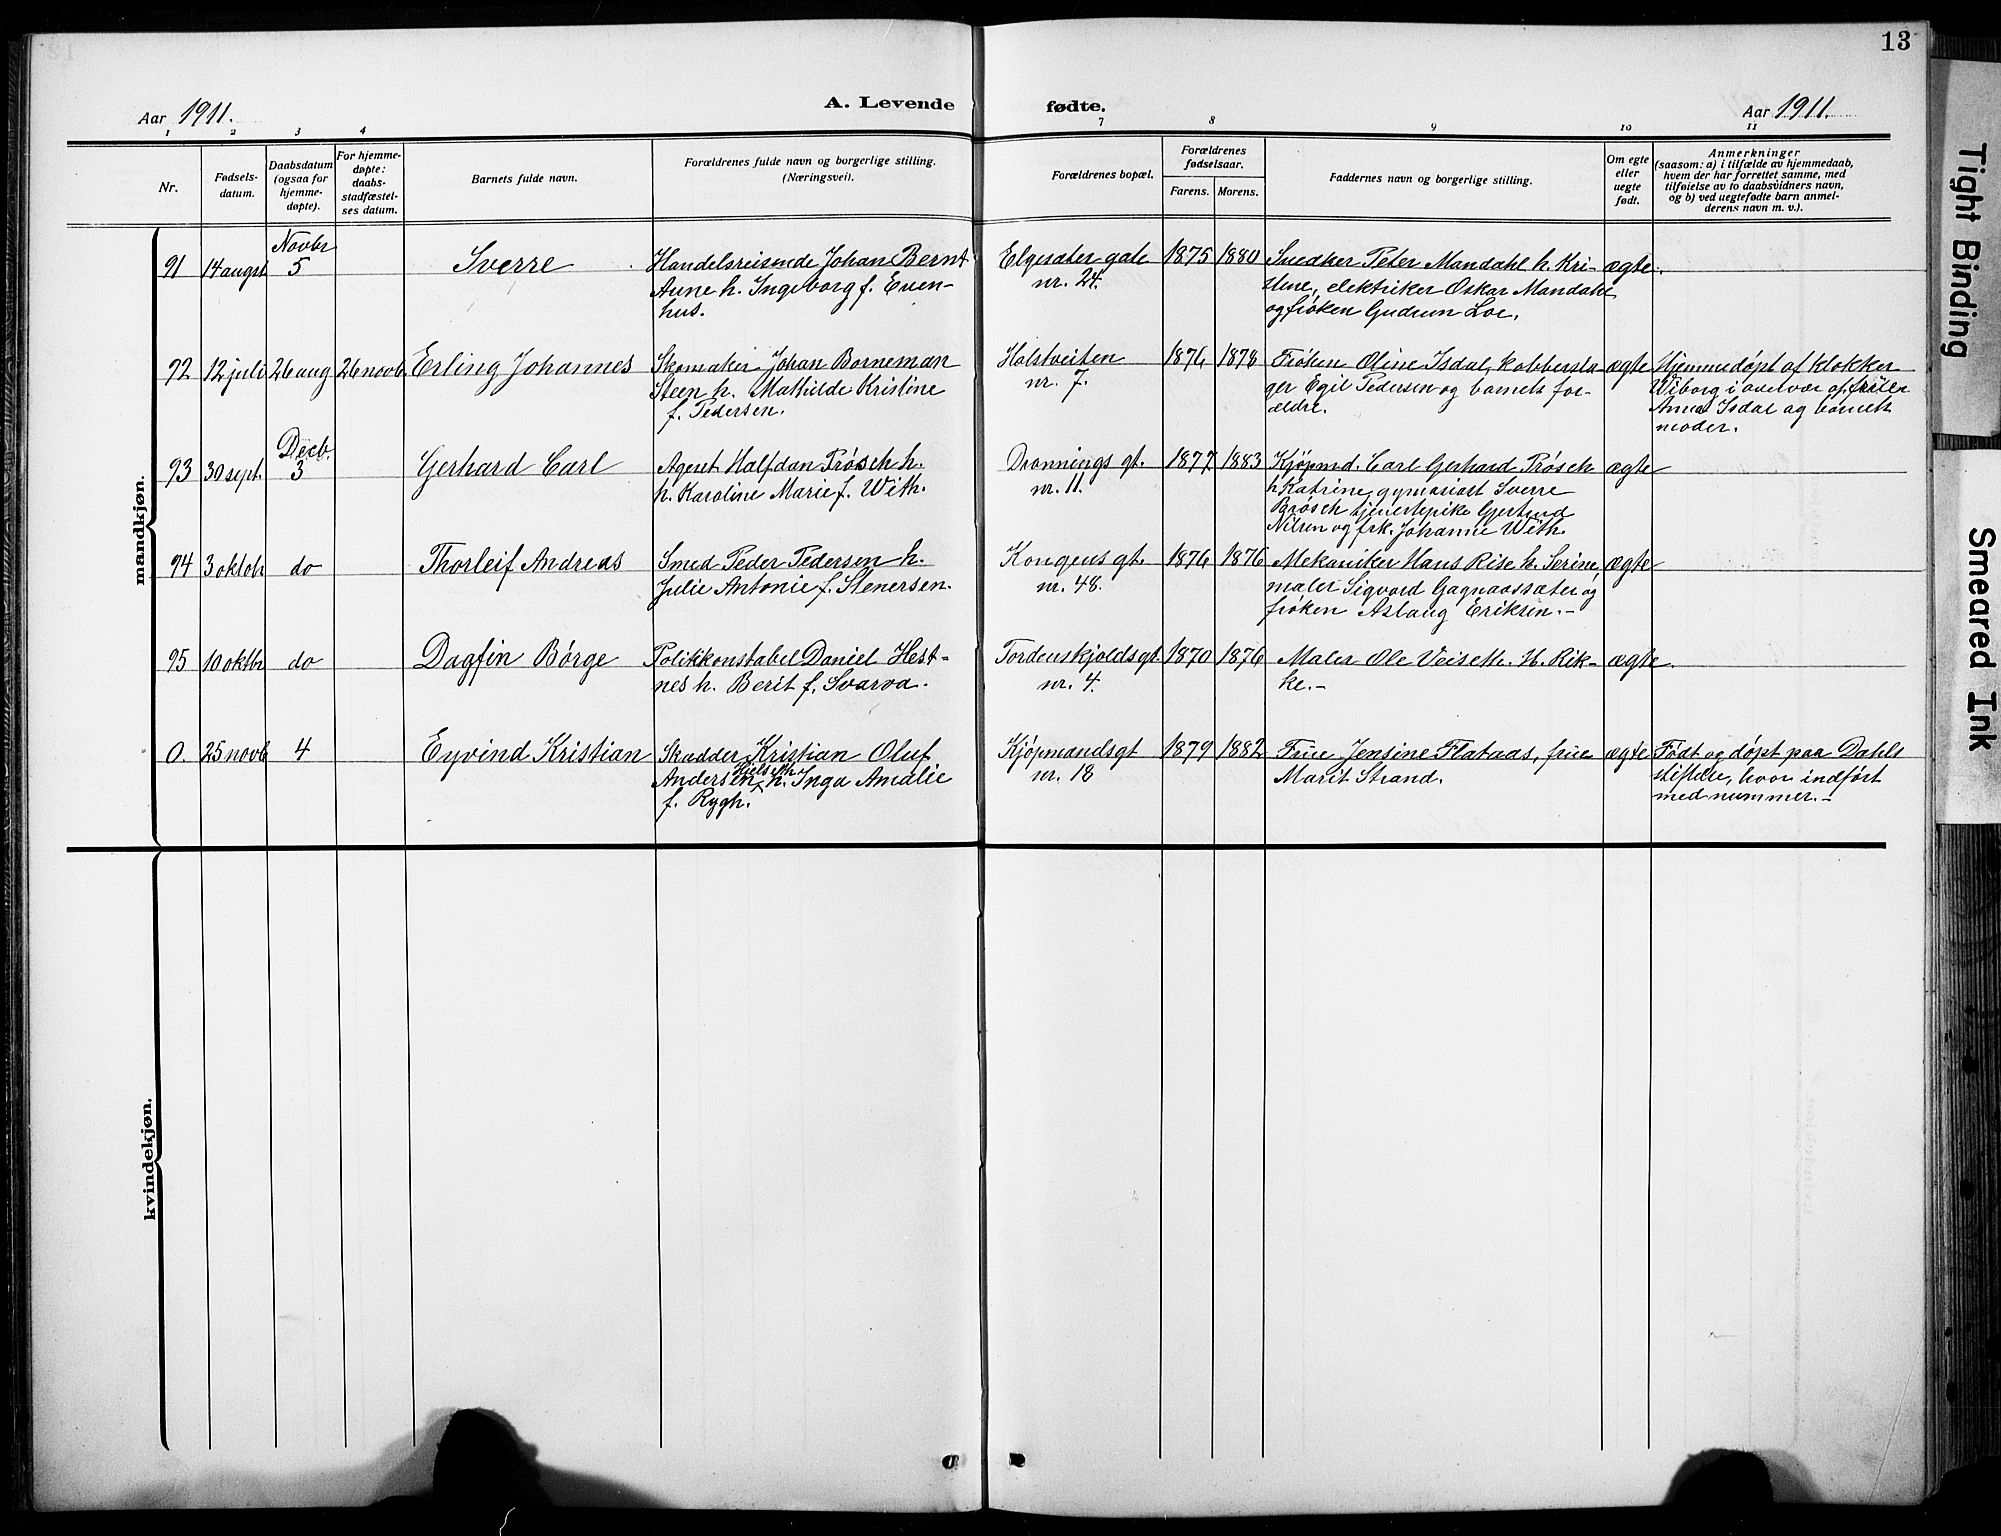 13
Aar 1911.
A. Levende
fødte.
Aar 1911.
1 2 3 4 7 8 9 10 11
Nr.
Fødsels-
datum.
Daabsdatum
(ogsaa for
hjemme-
døpte).
For hjemme-
døpte:
daabs-
stadfæstel-
ses datum.
Barnets fulde navn.
Forældrenes fulde navn og borgerlige stilling.
(Næringsvei).
Forældrenes bopæl.
Forældrenes
fødselsaar.
Farens. Morens.
Faddernes navn og borgerlige stilling.
Om egte
eller
uegte
født.
Anmerkninger
(saasom: a) i tilfælde av hjemmedaab,
hvem der har forrettet samme, med
tilføielse av to daabsvidners navn,
og b) ved uegtefødte barn anmel-
derens navn m. v.).
mandkjøn.
Novbr
91 14 augst 5 Sverre Handelsreisende Johan Bernt Elgesæter gate 1875 1880 Snedker Peter Mandahl h. Kri- ægte.
Aune h. Ingeborg f. Even- nr. 24. stine, elektriker Oskar Mandahl
hus. og frøken Gudrun Loe.
92 12 juli 26 aug 26 novb. Erling Johannes Skomaker Johan Borneman Holstveiten 1876 1878 Frøken Oline Isdal, kobbersla ægte Hjemmedøpt af klokker
Steen h. Mathilde Kristine nr. 7. ger Egil Pedersen og barnets for- Wiborg i overvær af frøken
f. Pedersen. ældre. Anna Isdal og barnets
moder.
Decb.
93 30 sept. 3 Gerhard Carl Agent Halfdan Frøsch h. Dronnings gt. 1877 1883 Kjøpmd. Carl Gerhard Frøsch ægte
h. Karoline Marie f. With. nr. 11. h Katrine, gymnasiast Sverre
Brøsch tjenestepike Gjertrud
Nilsen og frk. Johanne With.
94 3 oktob do Thorleif Andreas Smed Peder Pedersen h. Kongens gt. 1876 1876 Mekaniker Hans Rise h. Serine, ægte
Julie Antonie f. Stenersen. nr. 48. maler Sigvard Gagnaassæter og
frøken Aslaug Eriksen. -
95 10 oktbr do Dagfin Børge Politikonstabel Daniel Hest- Tordenskjoldsgt 1870 1876 Maler Ole Veisette. H. Rik- ægte.
nes h. Berit f. Svarva. nr. 4. ke. -
0. 25 novb 4 Eyvind Kristian Skrædder Kristian Oluf Kjøpmandsgt 1879 1882 Frue Jensine Flataas, frue ægte Født og døpt paa Dahls
Andersen h. Inga Amalie nr. 18 Marit Strand. stiftelse, hvor indført
f. Rygh. med nummer. -
kvindekjøn.
Tight Binding
Smeared Ink